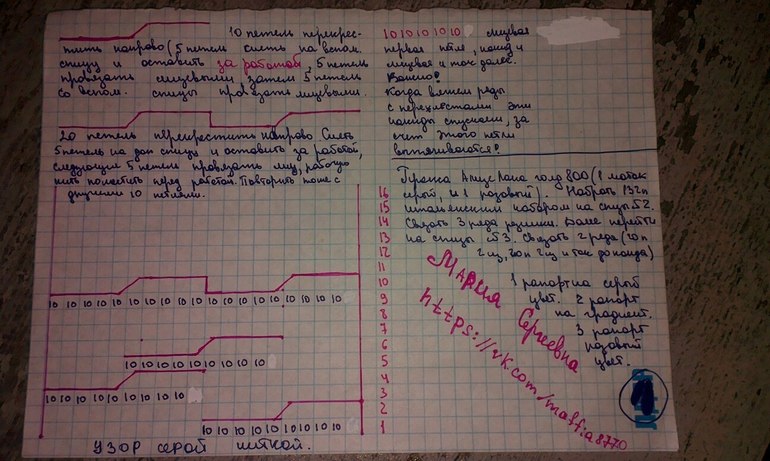 10 петель перекрес-
тить направо (5 петель снять на вспом.
спицу и оставить за работой, 5 петель
провязать лицевыми, затем 5 петель
со вспом. спицы провязать лицевыми.
20 петель перекрестить направо Снять
5 петель на доп спицу и оставить за работой,
следующие 5 петель провязать лиц, рабочую
нить поместить перед работой. Повторить тоже с
другими 10 петлями.
10 10 10 10 10 10 10 10 10 10 10 10 10 10 10 10 10 10 10 10
10 10 10 10 10 10 10 10 10 10
10 10 10 10 10 10 10 10 10
10 10 10 10 10 10 10 10 10
УЗОР СЕРОЙ НИТКОЙ.
10 10 10 10 10 лицевая
первая петля, накид и
лицевая и так далее.
Важно!
Когда вяжем ряды
с перехлестами эти
накиды спускаем, за
счет этого петли
вытягиваются!
Пряжа Ализе Лана голд 800 (1 моток
серый, и 1 розовый). Набрать 132 п
итальянским набором на спицы №2.
Связать 3 ряда резинки. Далее перейти
на спицы №3. Связать 2 ряда
и так до конца)
16
15
14
13
12
11
10
9
8
7
6
5
4
3
2
1
Мария Сергеевна
https://vk.com/maffia8770
1 рапорт на серый
цвет. 2 рапорт
на градиент.
3 рапорт
розовый
цвет.
1